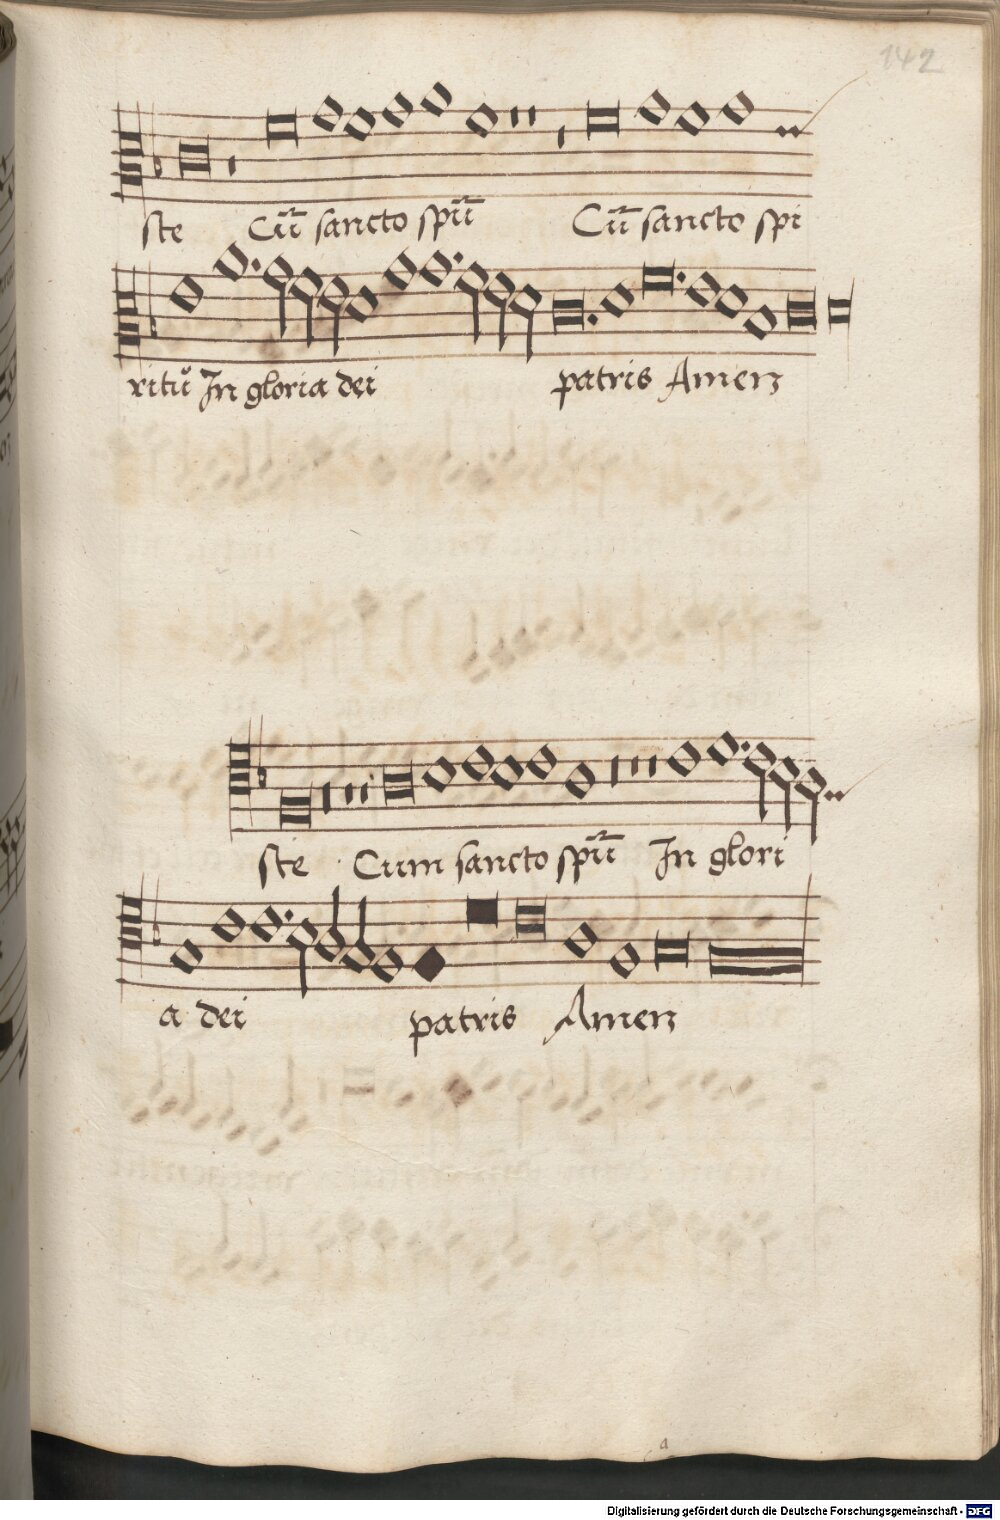 142
ste Cu̅ sancto spu̅ Cu̅ sancto spi
ritu̅ In gloria dei patris Amen
ste Cum sancto spu̅ In glori
a dei patris Amen
Digitalisierung gefördert durch die Deutsche Forschungsgemeinschaft - DFG